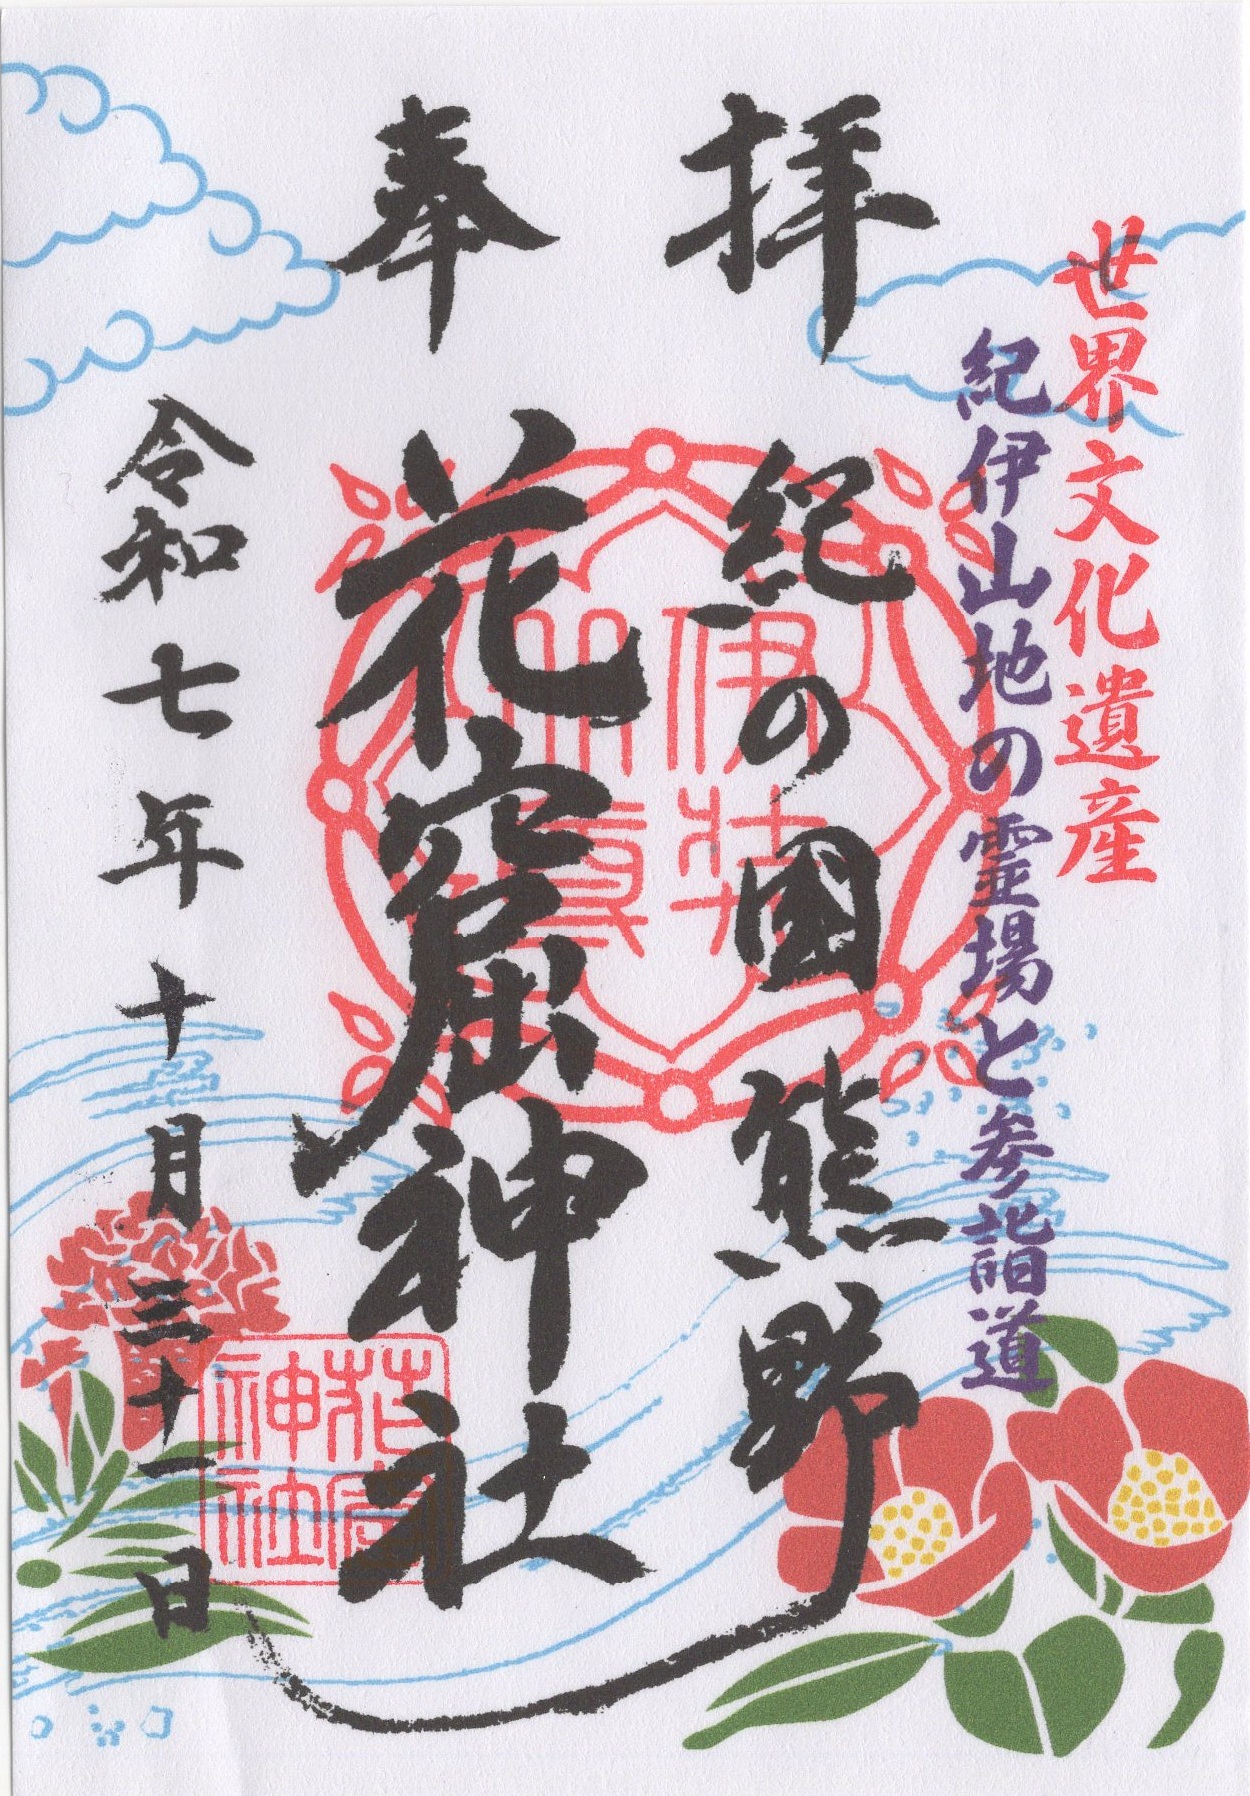 世界文化遺産
紀伊山地の霊場と参詣道
奉拝
紀の國熊野
花窟神社
令和七年十月三十一日
花窟
神社